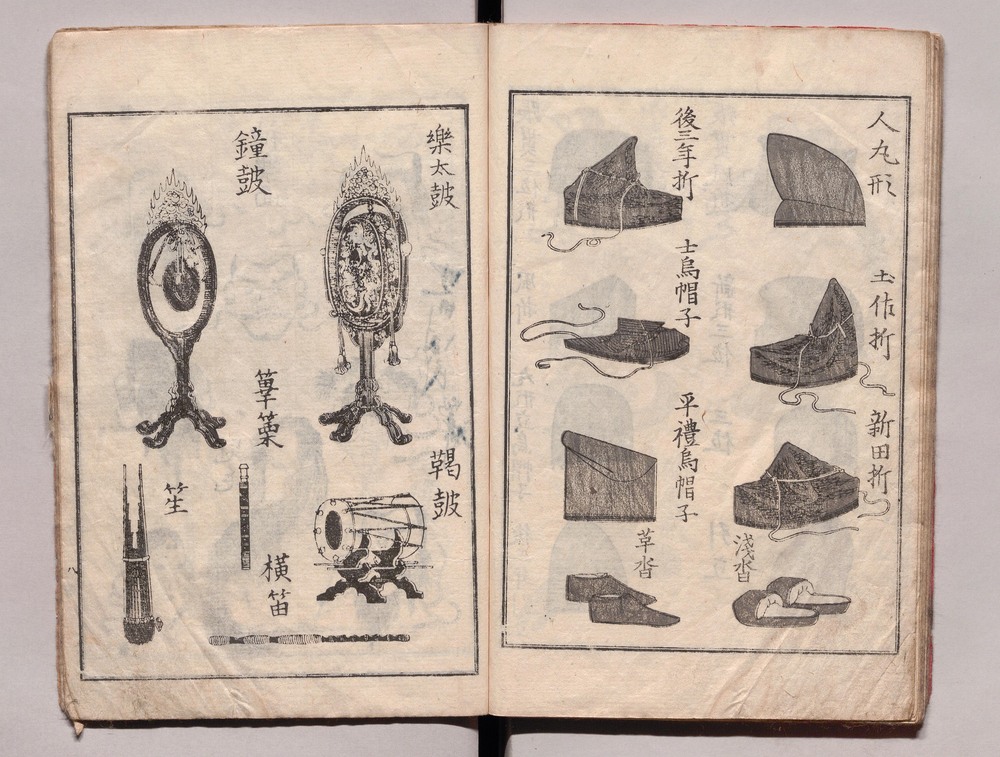 人丸形
土佐折
新田折
淺沓
後三年折
士烏帽子
平禮烏帽子
草沓
樂太鼓
鞨鼓
鐘鼓
篳篥
橫笛
笙